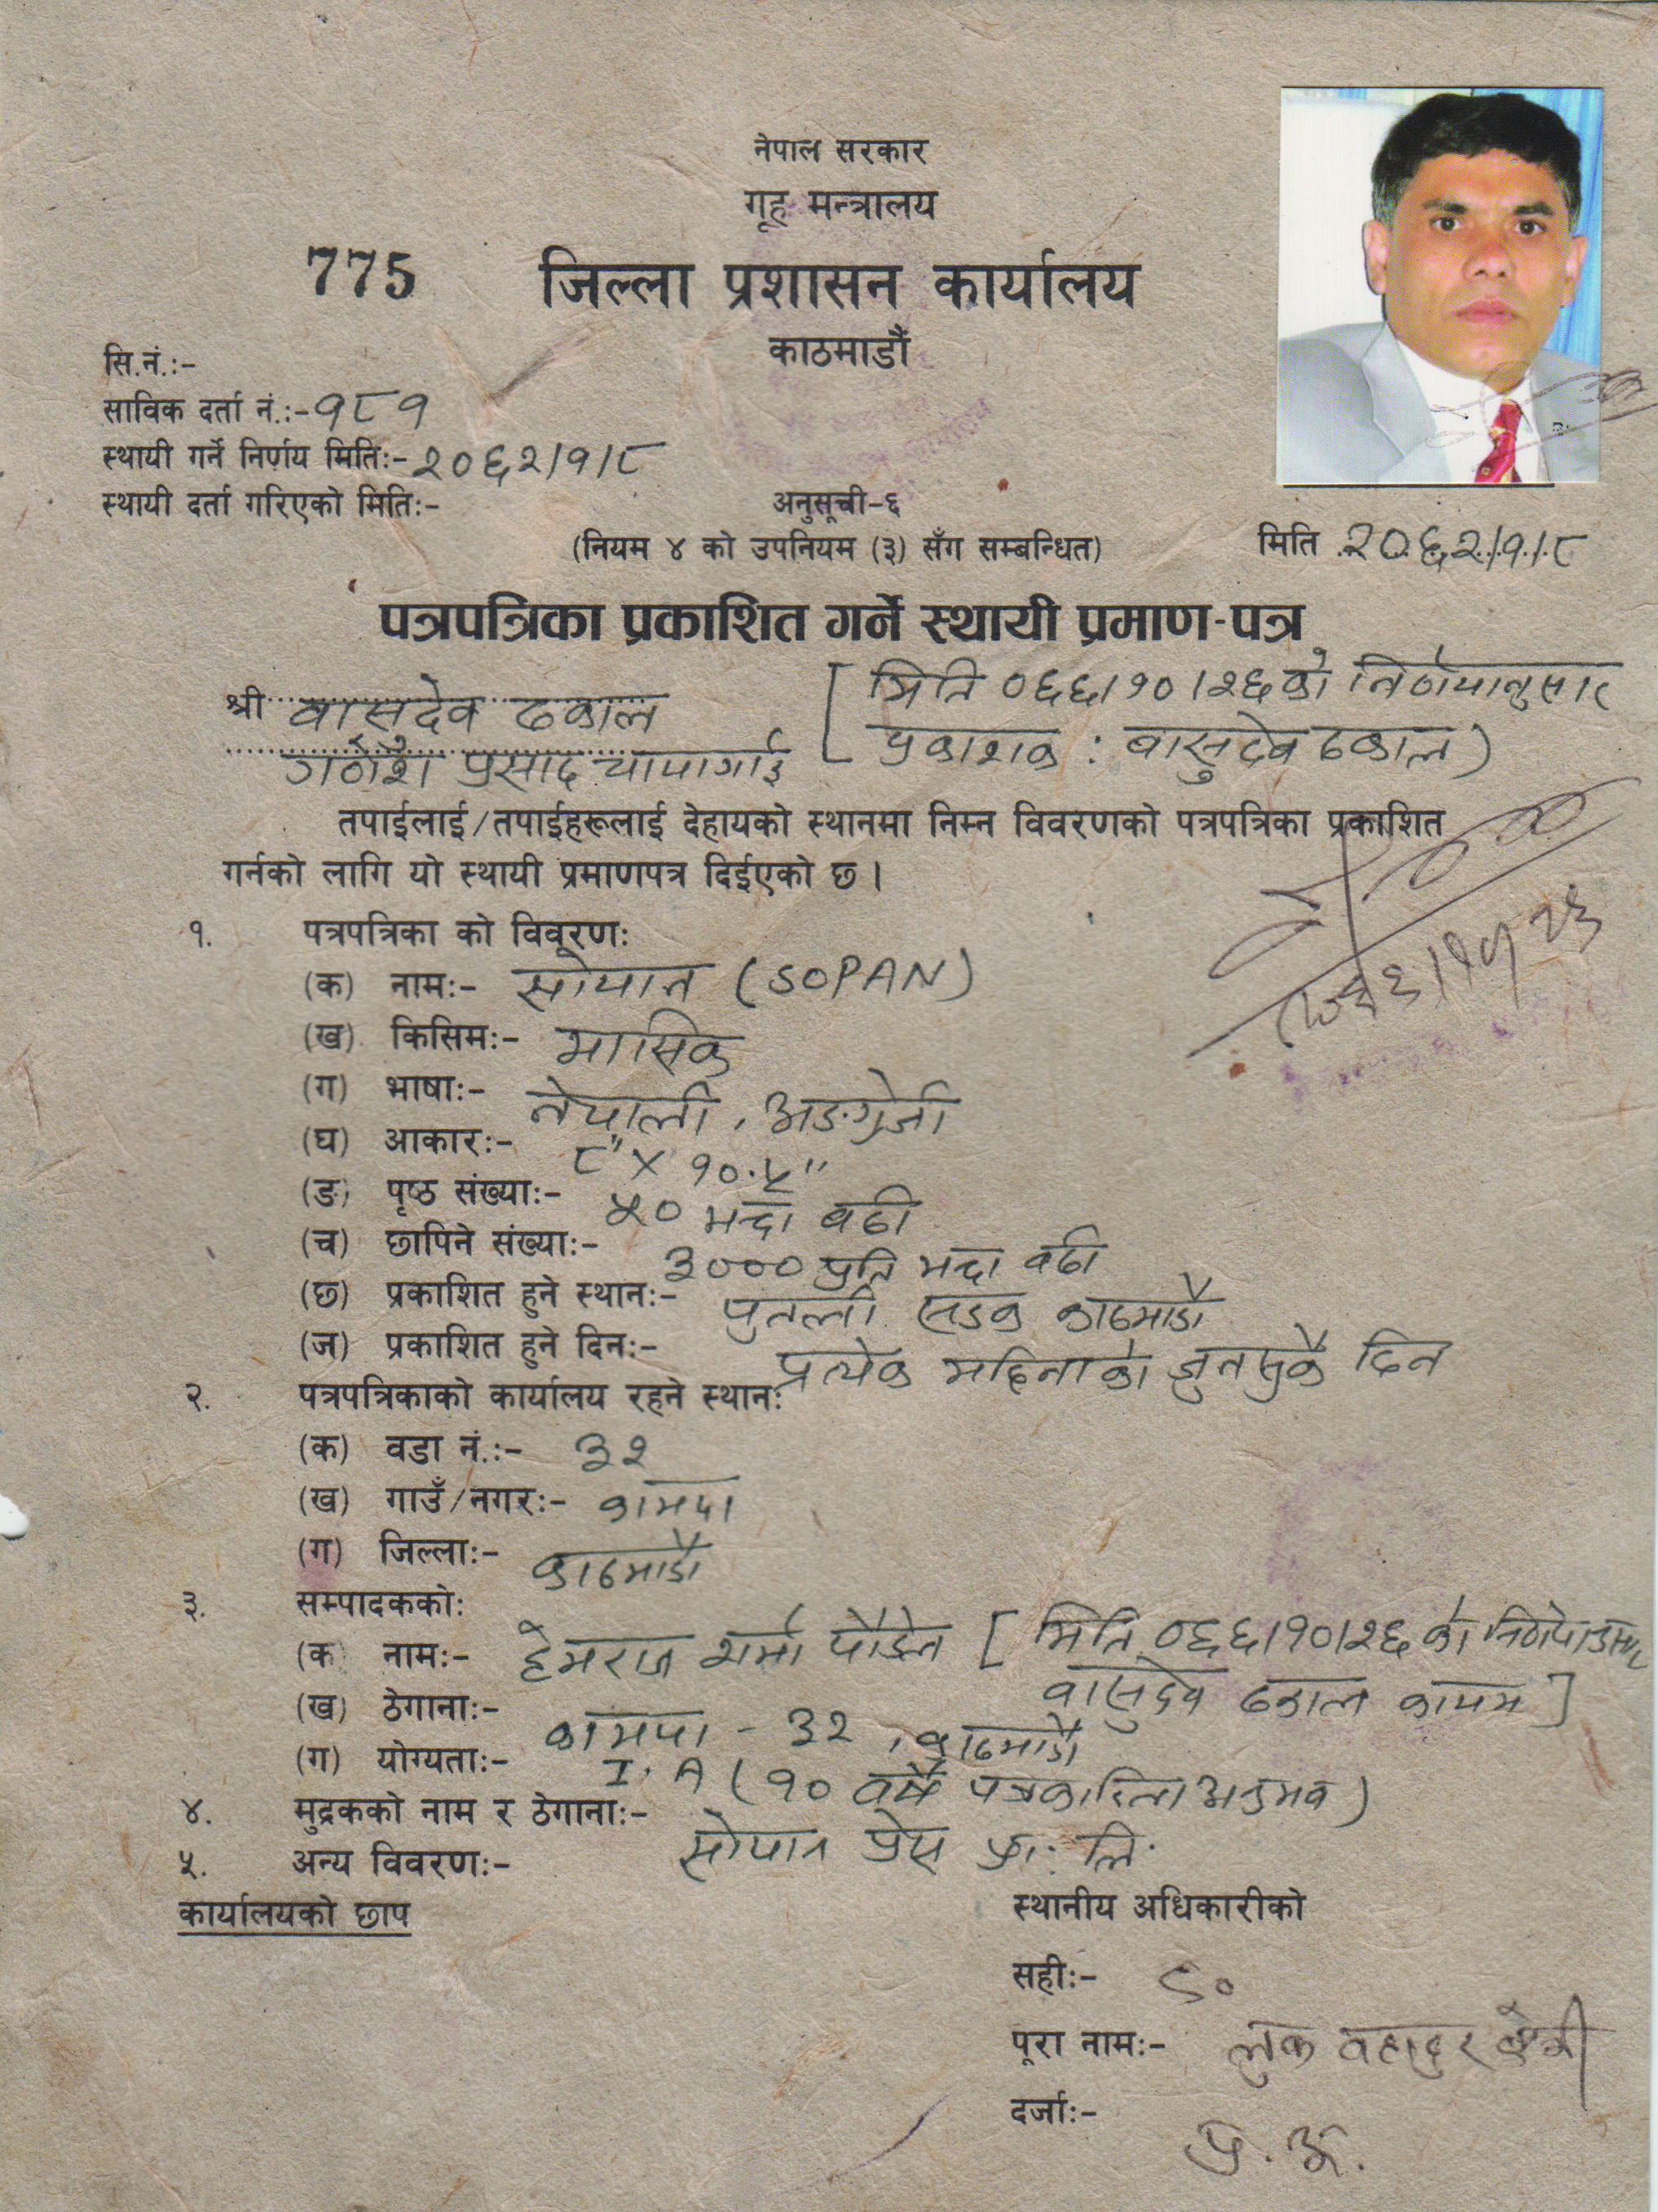 नेपाल सरकार
गृह मन्त्रालय
775 जिल्ला प्रशासन कार्यालय
काठमाडौं
सि.नं.:-
साविक दर्ता नं.:- ९८१
स्थायी गर्ने निर्णय मिति:- २०६२/१/८
स्थायी दर्ता गरिएको मिति:-
अनुसूची-६
(नियम ४ को उपनियम (३) सँग सम्बन्धित)
मिति २०६२/१/८
पत्रपत्रिका प्रकाशित गर्ने स्थायी प्रमाण-पत्र
श्री वासुदेव ढकाल [मिति ०६६/१०/२६ को निर्णयानुसार
गणेश प्रसाद चापागाई प्रकाशक : वासुदेव ढकाल)
तपाईलाई/तपाईहरूलाई देहायको स्थानमा निम्न विवरणको पत्रपत्रिका प्रकाशित
गर्नको लागि यो स्थायी प्रमाणपत्र दिईएको छ ।
१. पत्रपत्रिका को विवूरण:
(क) नाम:- सोपान (SOPAN)
(ख) किसिम:- मासिक
(ग) भाषा:- नेपाली, अङग्रेजी
(घ) आकार:- ८" X १०.५"
(ङ) पृष्ठ संख्या:- ५० भन्दा बढी
(च) छापिने संख्या:- ३००० प्रति भन्दा बढी
(छ) प्रकाशित हुने स्थान:- पुतली सडक काठमाडौं
(ज) प्रकाशित हुने दिन:- प्रत्येक महिनाको जुनसुकै दिन
२. पत्रपत्रिकाको कार्यालय रहने स्थान:
(क) वडा नं.:- ३२
(ख) गाउँ/नगर:- कामपा
(ग) जिल्ला:- काठमाडौं
३. सम्पादकको:
(क) नाम:- हेमराज शर्मा पौडेल [मिति ०६६/१०/२६ को निर्णयानुसार
वासुदेव ढकाल कायम]
(ख) ठेगाना:- कामपा - ३२, काठमाडौं
(ग) योग्यता:- I. A (१० वर्षे पत्रकारिता अनुभव)
४. मुद्रकको नाम र ठेगाना:- सोपान प्रेस प्रा. लि.
५. अन्य विवरण:-
कार्यालयको छाप
स्थानीय अधिकारीको
सही:-
पूरा नाम:- लुक बहादुर क्षेत्री
दर्जा:- प्र. अ.